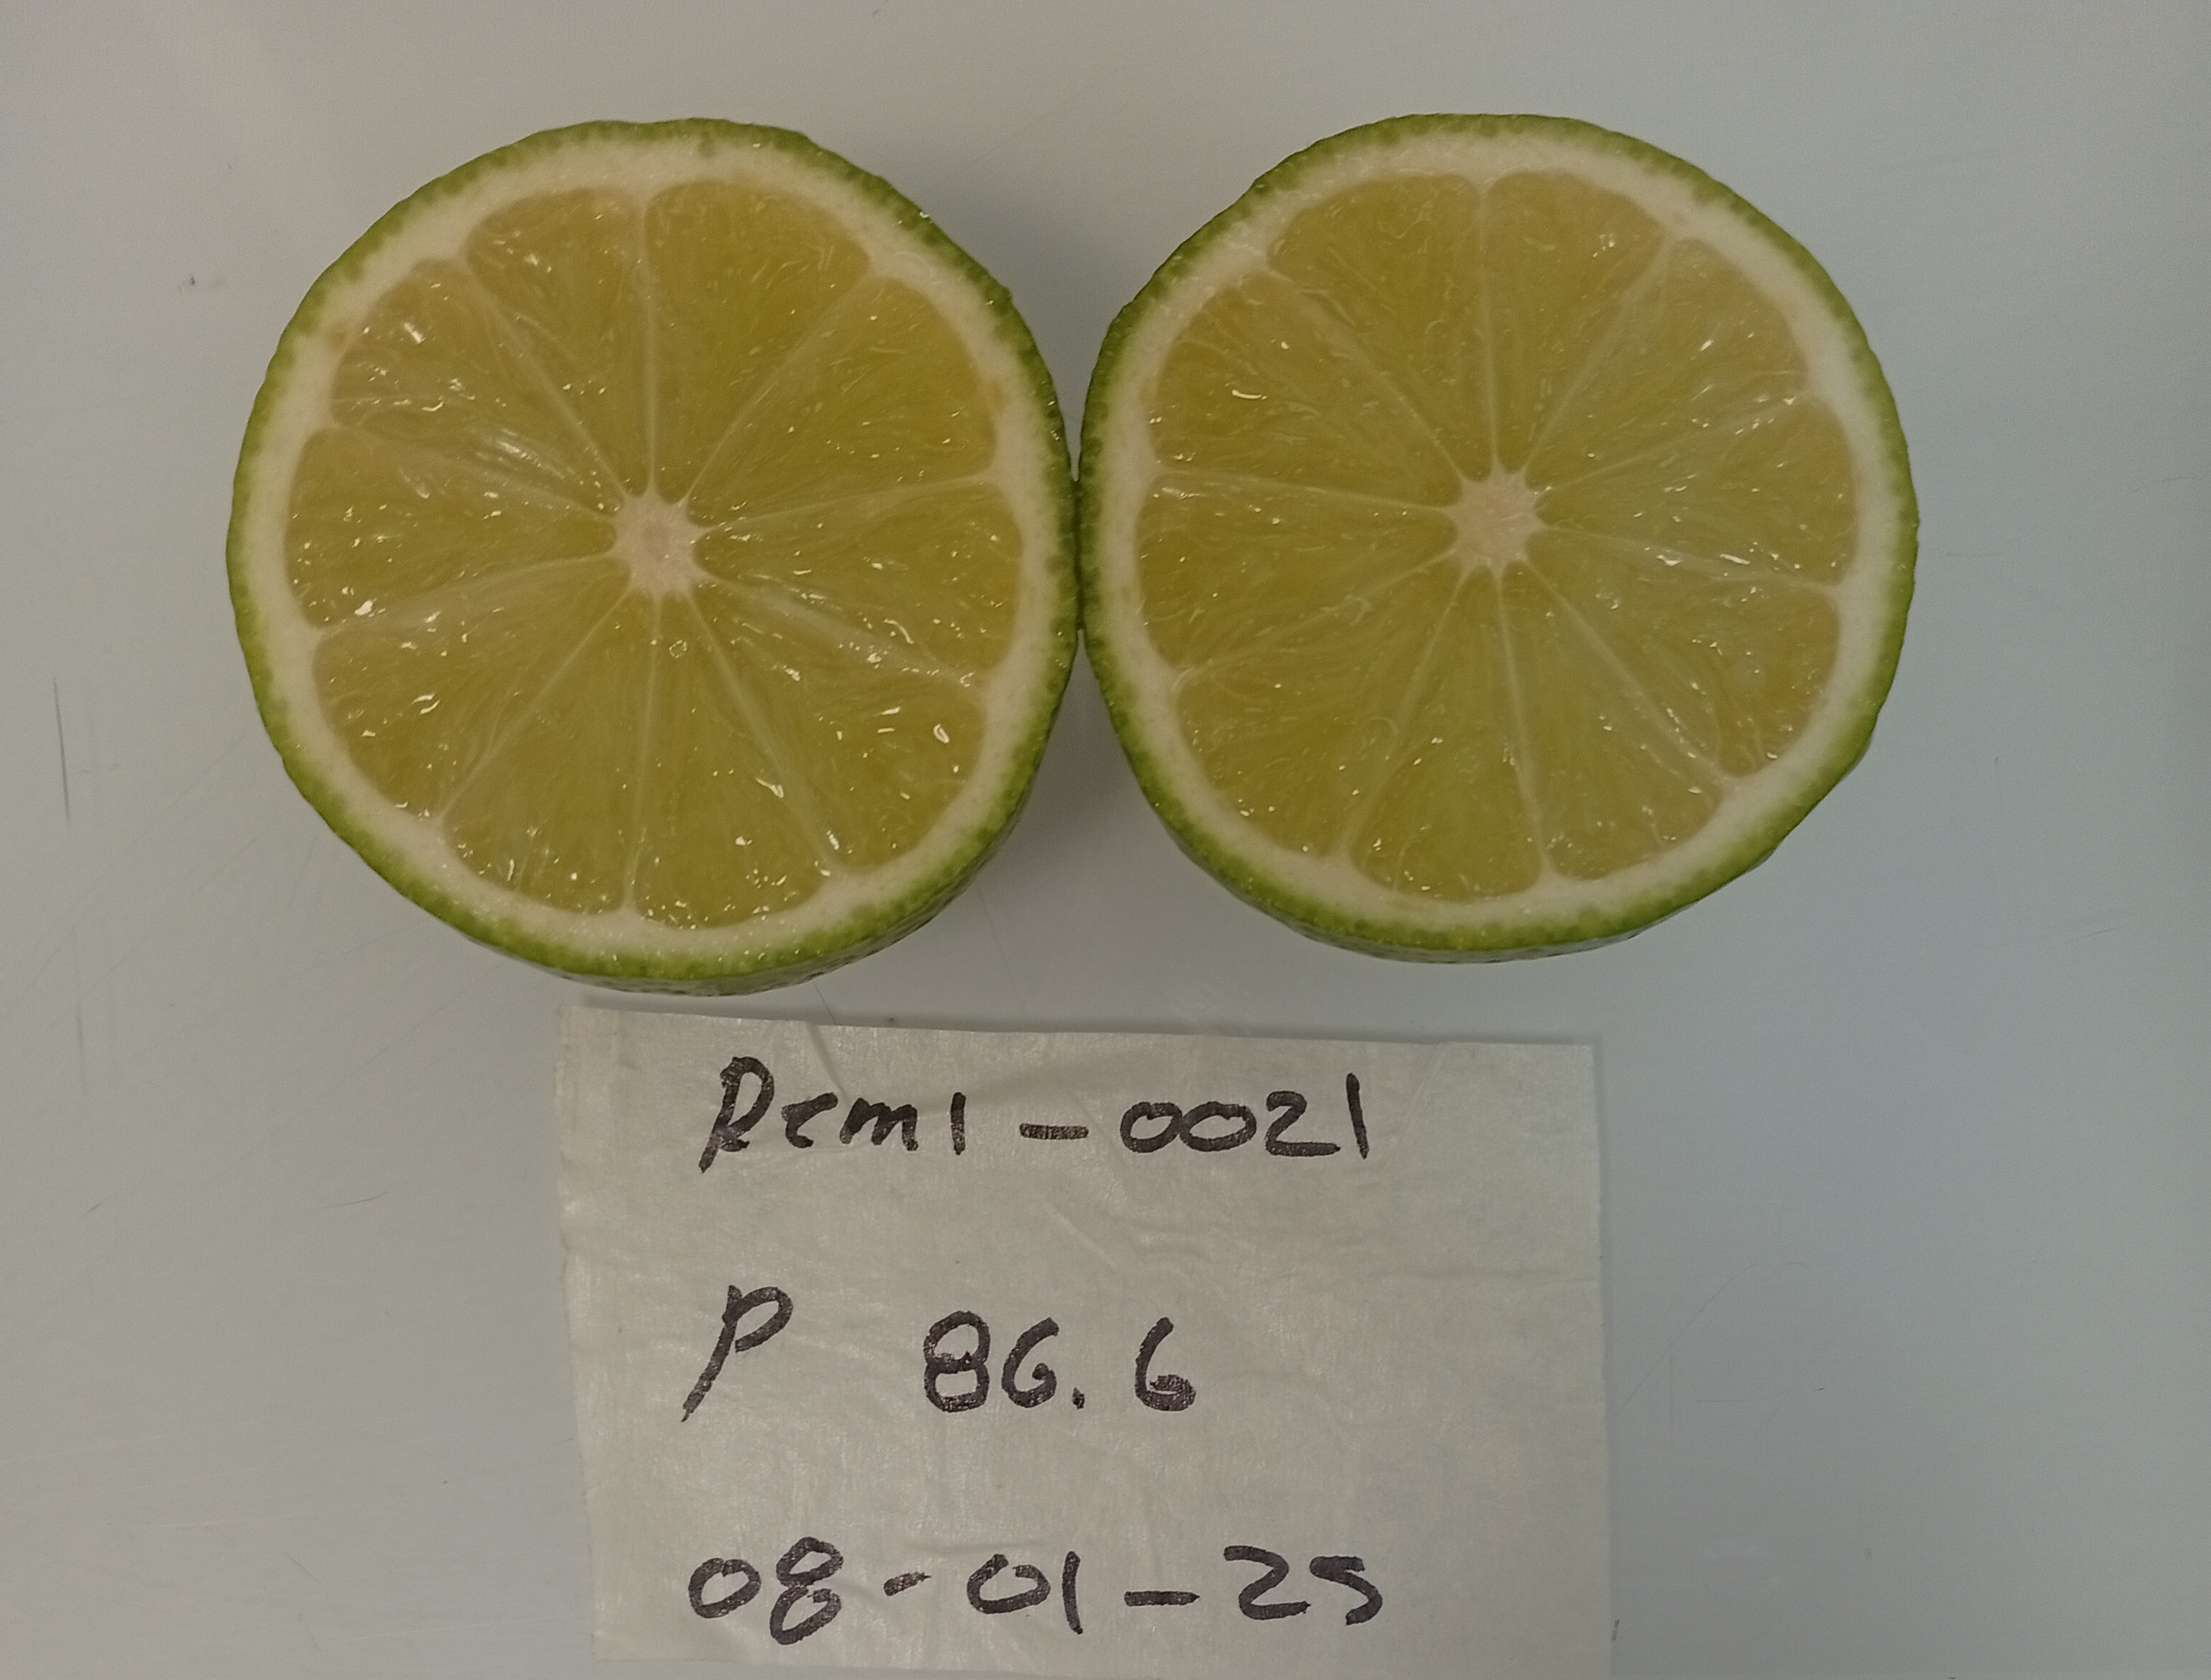 Rem1-0021
P 86.6
08-01-25